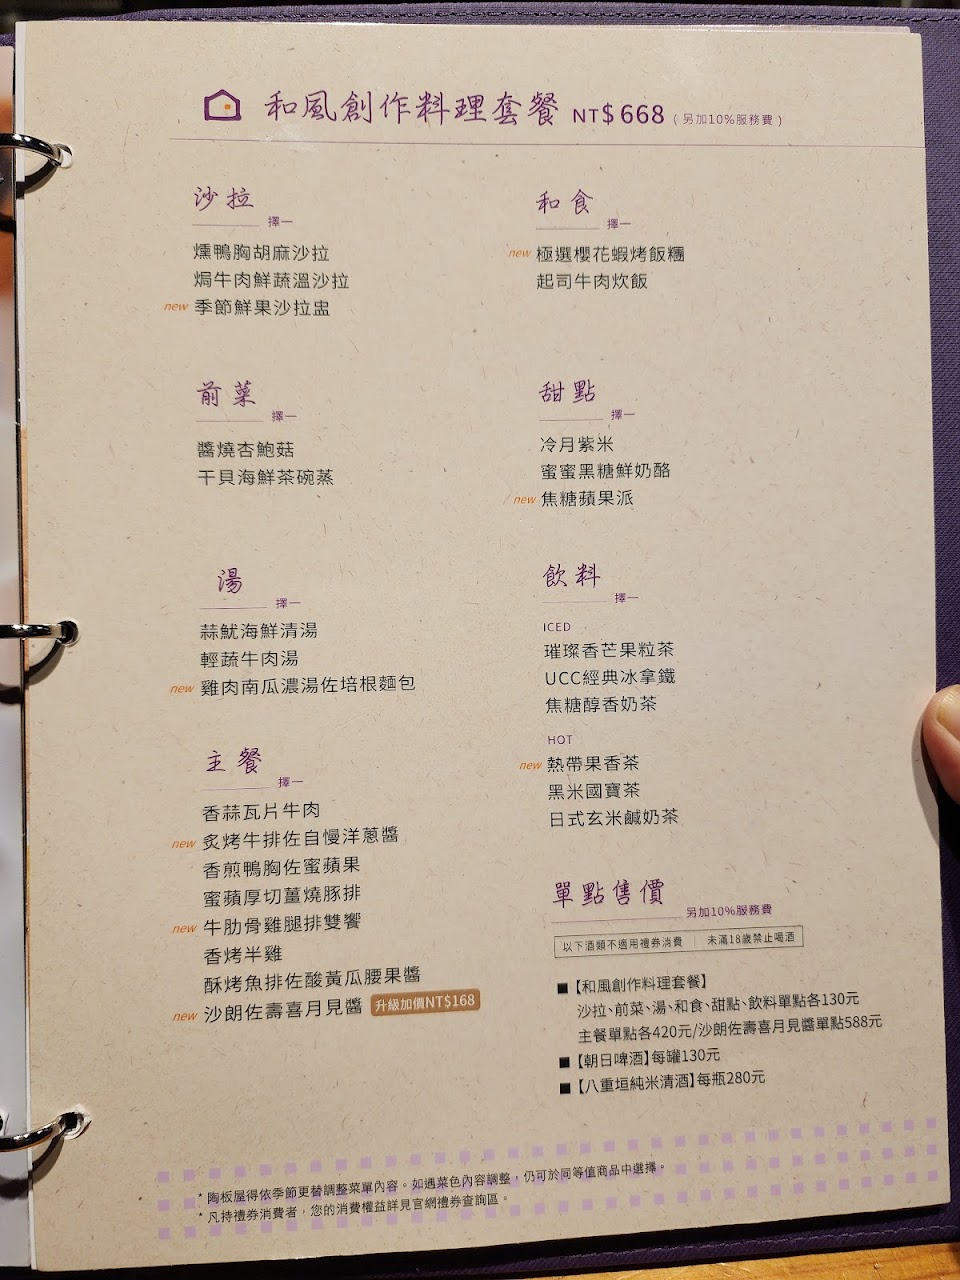 和風創作料理套餐 NT$668 (另加10%服務費)
沙拉
擇一
燻鴨胸胡麻沙拉
焗牛肉鮮蔬溫沙拉
new 季節鮮果沙拉盅
前菜
擇一
醬燒杏鮑菇
干貝海鮮茶碗蒸
湯
擇一
蒜魷海鮮清湯
輕蔬牛肉湯
new 雞肉南瓜濃湯佐培根麵包
主餐
擇一
香蒜瓦片牛肉
new 炙烤牛排佐自慢洋蔥醬
香煎鴨胸佐蜜蘋果
蜜蘋厚切薑燒豚排
new 牛肋骨雞腿排雙饗
香烤半雞
酥烤魚排佐酸黃瓜腰果醬
new 沙朗佐壽喜月見醬 升級加價NT$168
和食
擇一
new 極選櫻花蝦烤飯糰
起司牛肉炊飯
甜點
擇一
冷月紫米
蜜蜜黑糖鮮奶酪
new 焦糖蘋果派
飲料
擇一
ICED
璀璨香芒果粒茶
UCC經典冰拿鐵
焦糖醇香奶茶
HOT
new 熱帶果香茶
黑米國寶茶
日式玄米鹹奶茶
單點售價
另加10%服務費
以下酒類不適用禮券消費 | 未滿18歲禁止喝酒
■【和風創作料理套餐】
沙拉、前菜、湯、和食、甜點、飲料單點各130元
主餐單點各420元/沙朗佐壽喜月見醬單點588元
■【朝日啤酒】每罐130元
■【八重垣純米清酒】每瓶280元
* 陶板屋得依季節更替調整菜單內容。如遇菜色內容調整，仍可於同等值商品中選擇。
* 凡持禮券消費者，您的消費權益詳見官網禮券查詢區。